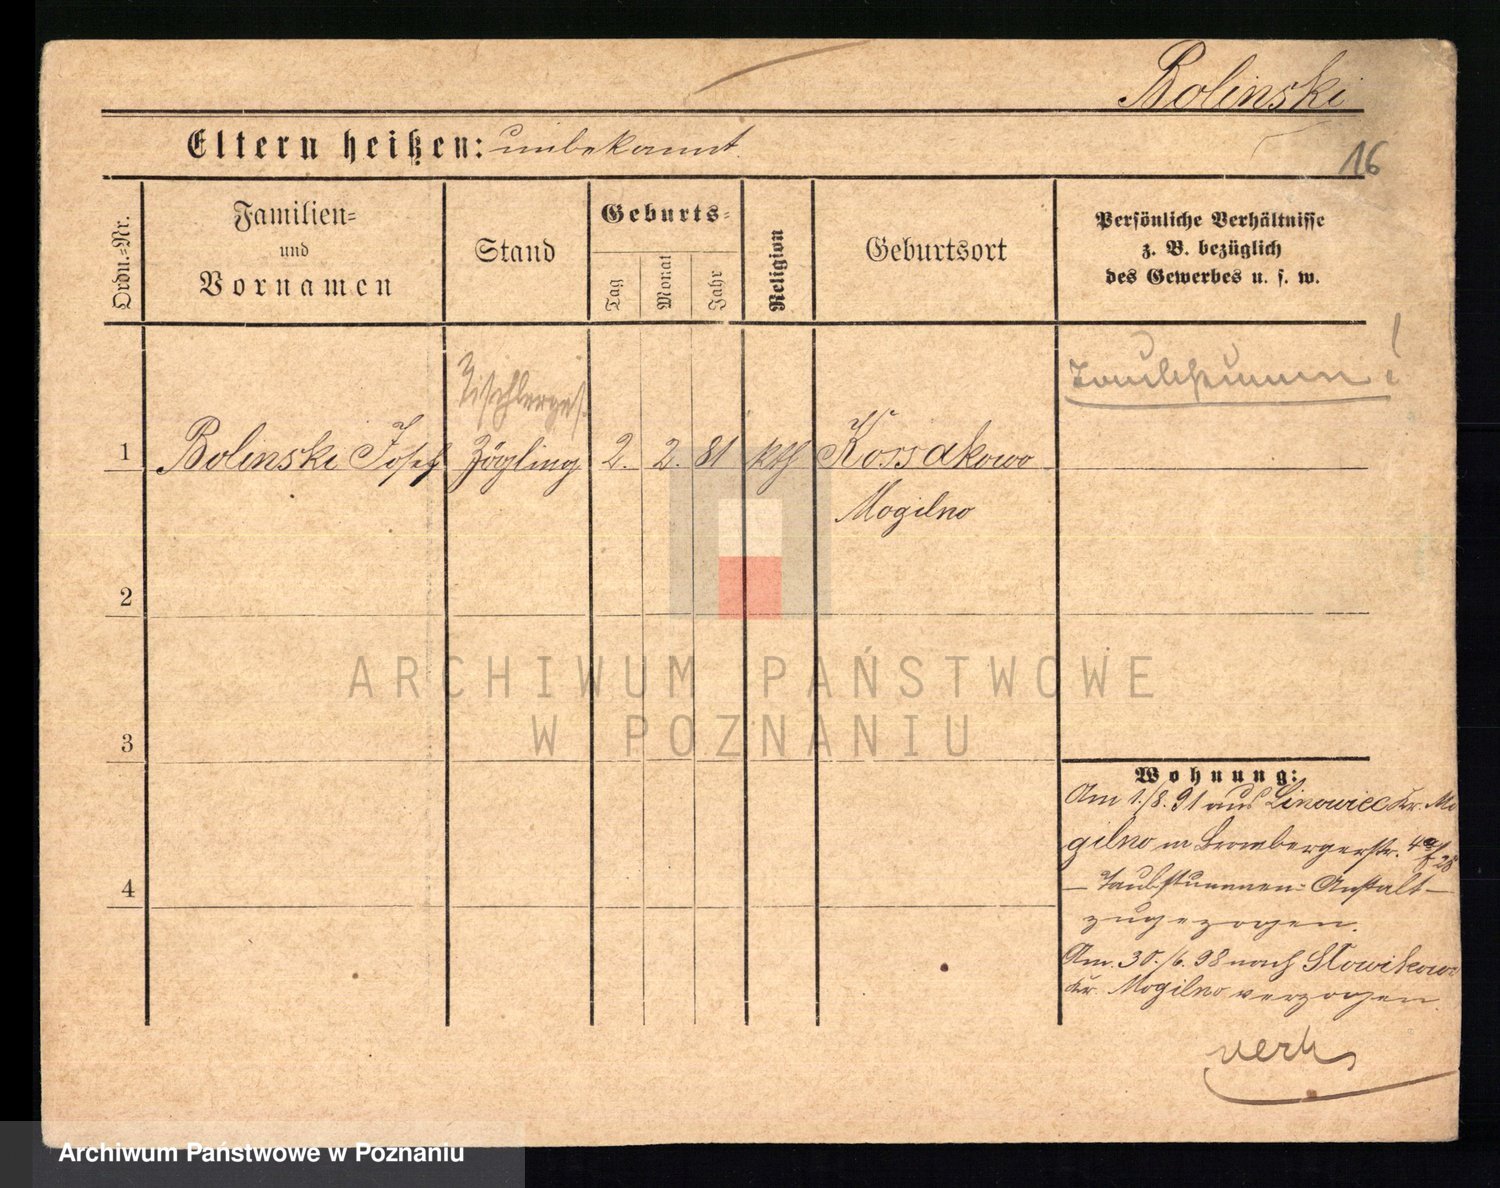 Bolinski
Eltern heißen: unbekannt.
16
Ordn.-Nr.
Familien-
und
Vornamen
Stand
Geburts-
Tag
Monat
Jahr
Religion
Geburtsort
Persönliche Verhältnisse
z. B. bezüglich
des Gewerbes u. s. w.
Taubstumm!
Tischlerges.
1 Bolinski Josef Zögling 2. 2. 81 kth Kossakowo
Mogilno
2
3
4
Wohnung:
Am 1./8. 91 aus Linowiec Kr. Mo
gilno in Brombergerstr.
— Taubstummen-Anstalt —
zugezogen.
Am 30./6. 98 nach Slowikowo
Kr. Mogilno verzogen.
ARCHIWUM PAŃSTWOWE
W POZNANIU
Archiwum Państwowe w Poznaniu